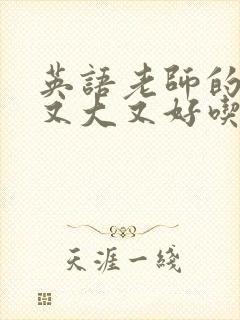 英語老師的
又大又好喫
天涯一綫